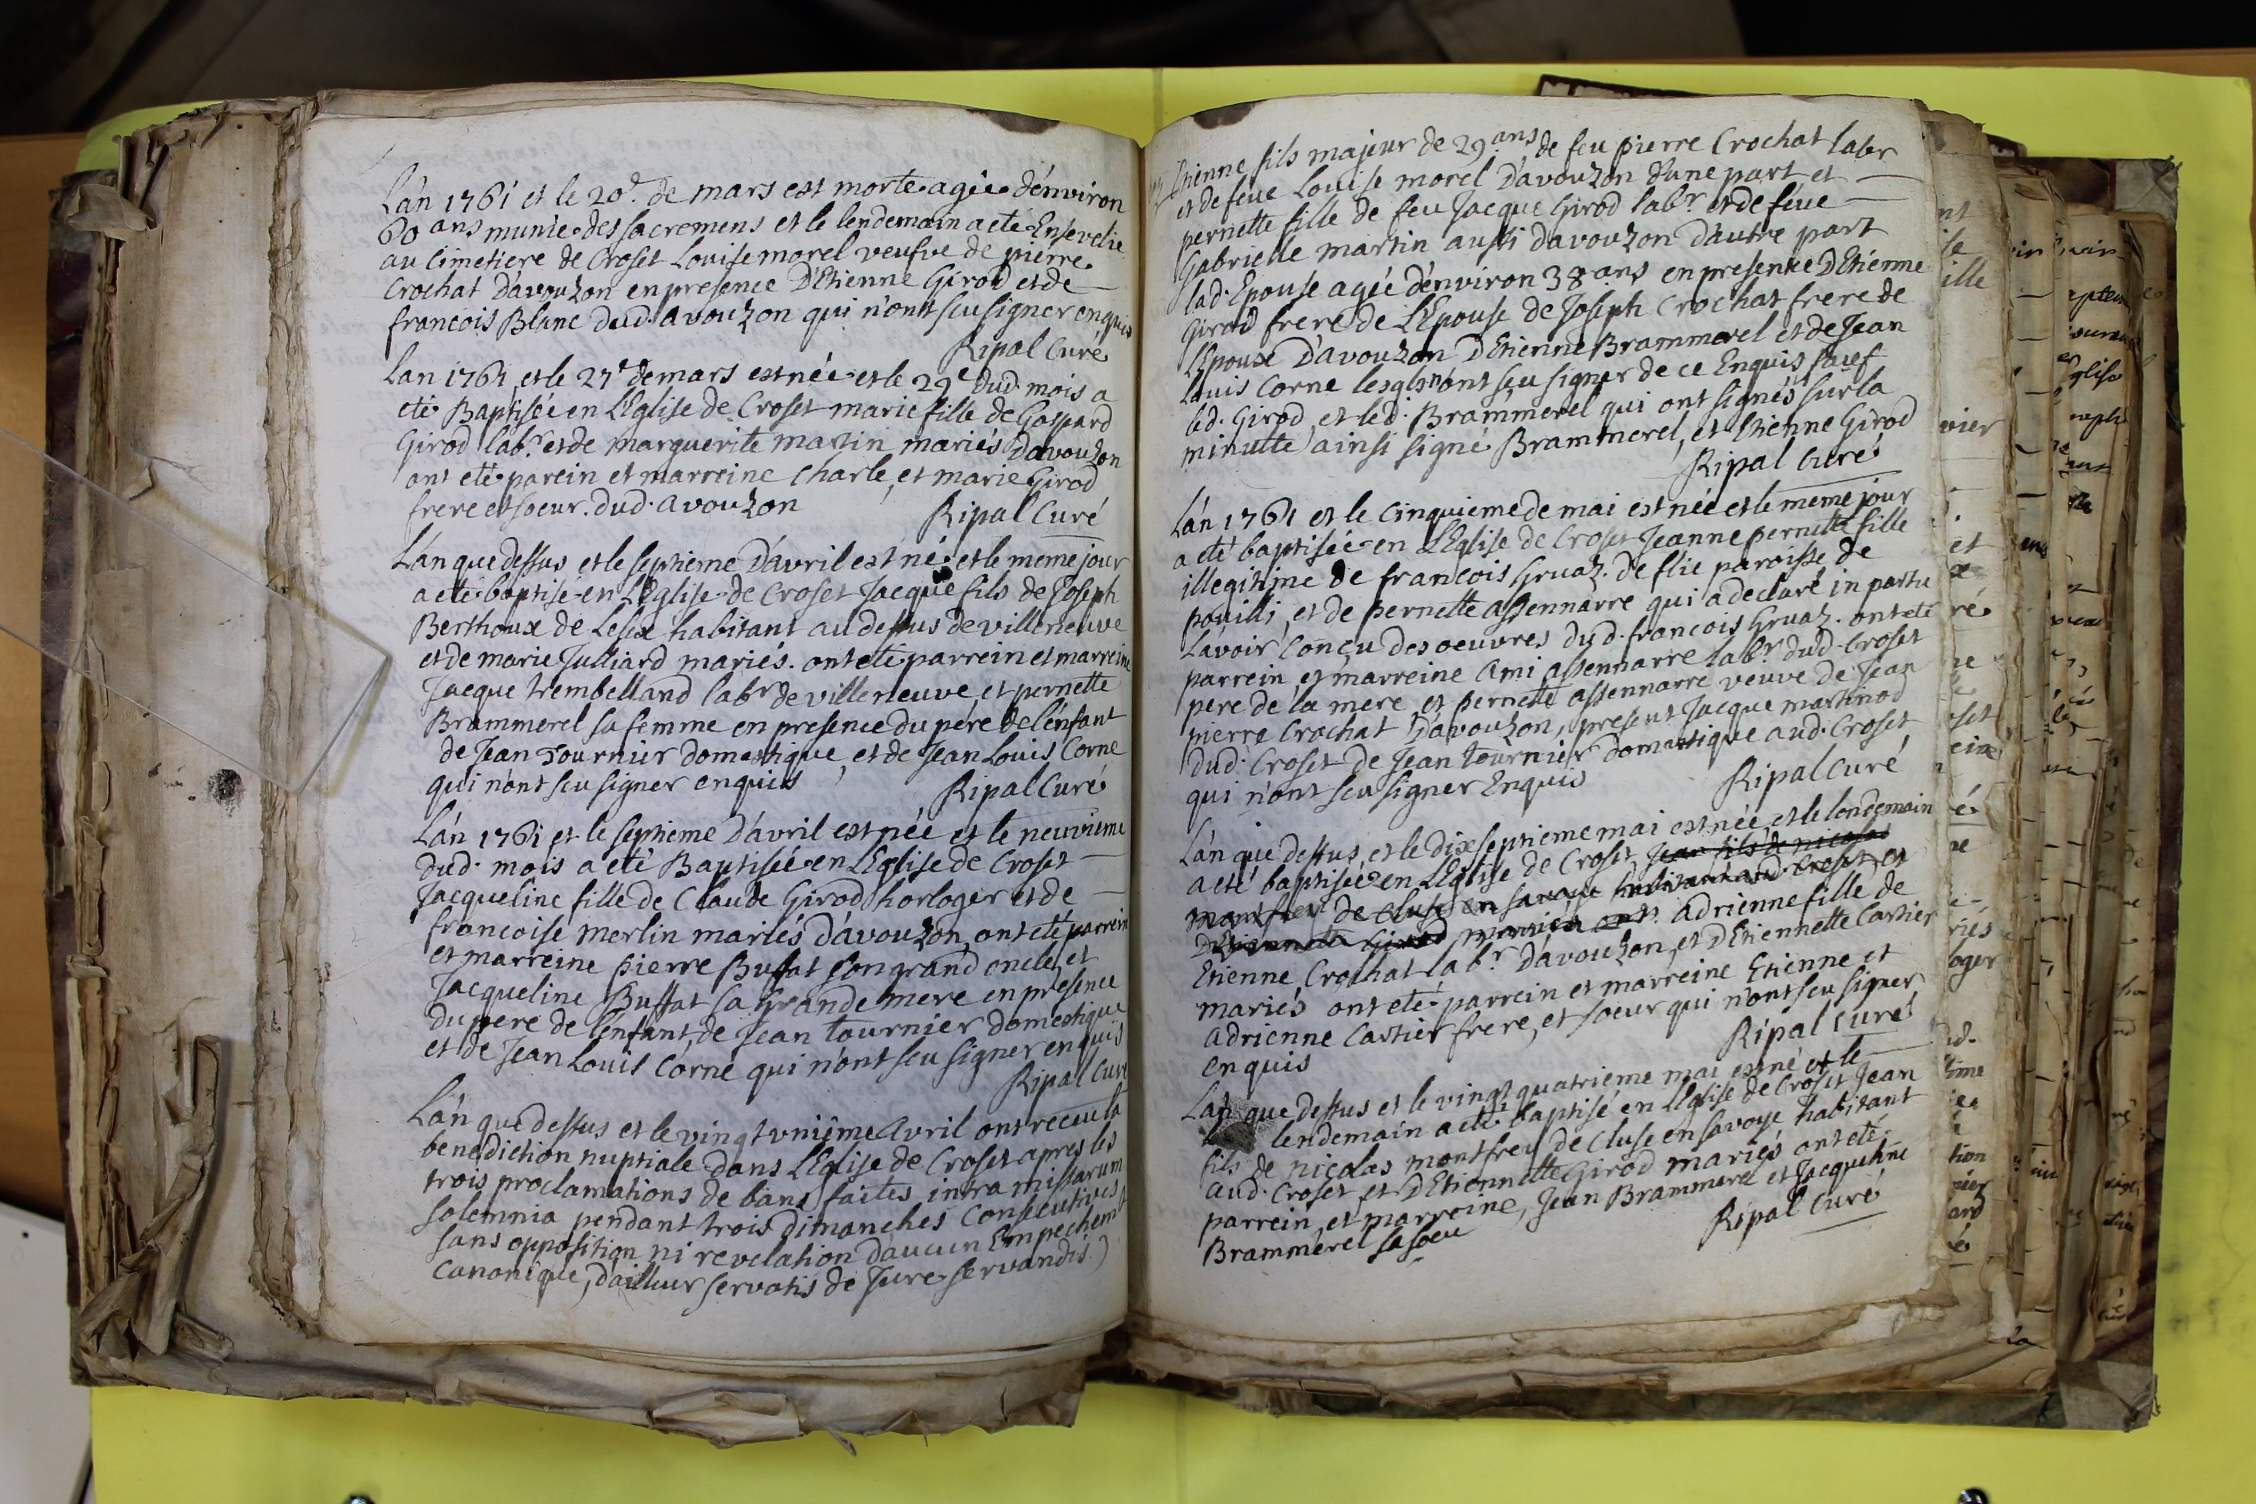 L'an 1761 et le 20e. de mars est morte agée d'environ
60 ans munie des sacremens et le lendemain a eté Ensevelie
au cimetiere de Croset Louise morel veufve de pierre
Crochat D'avouzon en presence D'Etienne Girod et de
francois Blanc dud. avouzon qui n'ont sçu signer enquis
Ripal Curé
Lan 1761 et le 27e de mars est née et le 29e dud. mois a
eté Baptisée en L'Eglise de Croset marie fille de Gaspard
Girod labr. et de marguerite martin mariés D'avouzon
ont eté parein et marreine Charle, et marie Girod
frere et soeur. dud. avouzon
Ripal Curé
L'an que dessus et le septieme D'avril est né et le meme jour
a eté baptisé en L'Eglise de Croset Jacque fils de Joseph
Berthoux de Lesex habitant au dessus de villeneuve
et de marie Julliard mariés. ont eté parrein et marreine
Jacque trembelland labr de villeneuve et pernette
Brammerel sa femme en presence du pére de l'enfant
de Jean Tournier domestique, et de Jean Louis Corne
qui n'ont sçu signer enquis
Ripal Curé
L'an 1761 et le septieme D'avril est née et le neuvieme
dud. mois a eté Baptisée en L'Eglise de Croset
Jacqueline fille de Claude Girod horloger et de
francoise merlin mariés d'avouzon, ont eté parrein
et marreine pierre Buffat son grand oncle, et
Jacqueline Buffat sa Grande mere en presence
du pere de l'enfant, de Jean tournier domestique
et de Jean Louis Corne qui n'ont sçu signer enquis
Ripal Curé
L'an que dessus et le vingt vniême avril ont receu la
benediction nuptiale dans L'Eglise de Croset apres les
trois proclamations de bans faites intra missarum
solemnia pendant trois dimanches consecutives
sans opposition ni revelation d'aucun Empechemt
canonique, d'ailleur servatis de Jure servandis.)
Etienne fils majeur de 29 ans de feu pierre Crochat labr
et de feue Louise morel D'avouzon d'une part et
pernette fille de feu Jacque Girod labr. et de feue
Gabrielle martin aussi d'avouzon d'autre part
lad. Epouse agée d'environ 38 ans en presence D'Etienne
Girod frere de L'Epouse de Joseph Crochat frere de
L'Epoux D'avouzon D'Etienne Brammerel et de Jean
Louis Corne lesqls n'ont sçu signer de ce Enquis sauf
led. Girod, et led. Brammerel qui ont signés sur la
minutte) ainsi signé Brammerel, et Etienne Girod
Ripal Curé
L'an 1761 et le cinquieme de mai est née et le meme jour
a eté baptisée en L'Eglise de Croset Jeanne pernette fille
illegitime de francois Gruaz. de flie paroisse de
pouilli, et de pernette assennarre qui a declaré in partu
l'avoir conçu des oeuvres dud. francois Gruaz. ont eté
parrein, et marreine ami assennarre labr. dud. Croset
pere de la mere et pernette assennarre veuve de Jean
pierre Crochat D'avouzon, present Jacque martinod
dud. Croset de Jean tournier domestique aud. Croset
qui n'ont sçu signer Enquis
Ripal Curé
L'an que dessus, et le dix septieme mai est née, et le lendemain
a eté baptisée en L'Eglise de Croset Jean fils de nicolas
montfreu de Cluse en savoye habitant aud. Croset, et
D'Etiennette Girod mariés ont. adrienne fille de
Etienne Crochat labr. D'avouzon, et D'Etiennette Castier
mariés ont eté parrein et marreine Etienne et
adrienne Castier frere, et soeur qui n'ont sçu signer
enquis
Ripal Curé
L'an que dessus et le vingt quatrieme mai est né et le
lendemain a eté baptisé en L'Eglise de Croset Jean
fils de nicolas montfreu de Cluse en savoye habitant
aud. Croset, et D'Etiennette Girod mariés ont eté
parrein, et marreine, Jean Brammerel et Jacqueline
Brammerel sa soeu
Ripal Curé